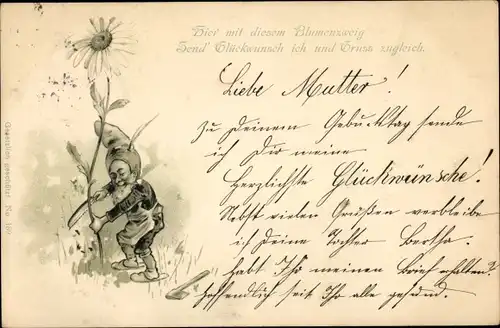 Hier mit diesem Blumenzweig
Send' Glückwunsch ich und Gruss zugleich.
Liebe Mutter!
zu Deinem Geburtstag sende
ich Dir meine
Herzlichste Glückwünsche!
Nebst vielen Grüßen verbleibe
ich Deine Tochter Bertha.
habt Ihr meinen Brief erhalten?
hoffendlich seit Ihr alle gesund.
Gesetzlich geschützt No